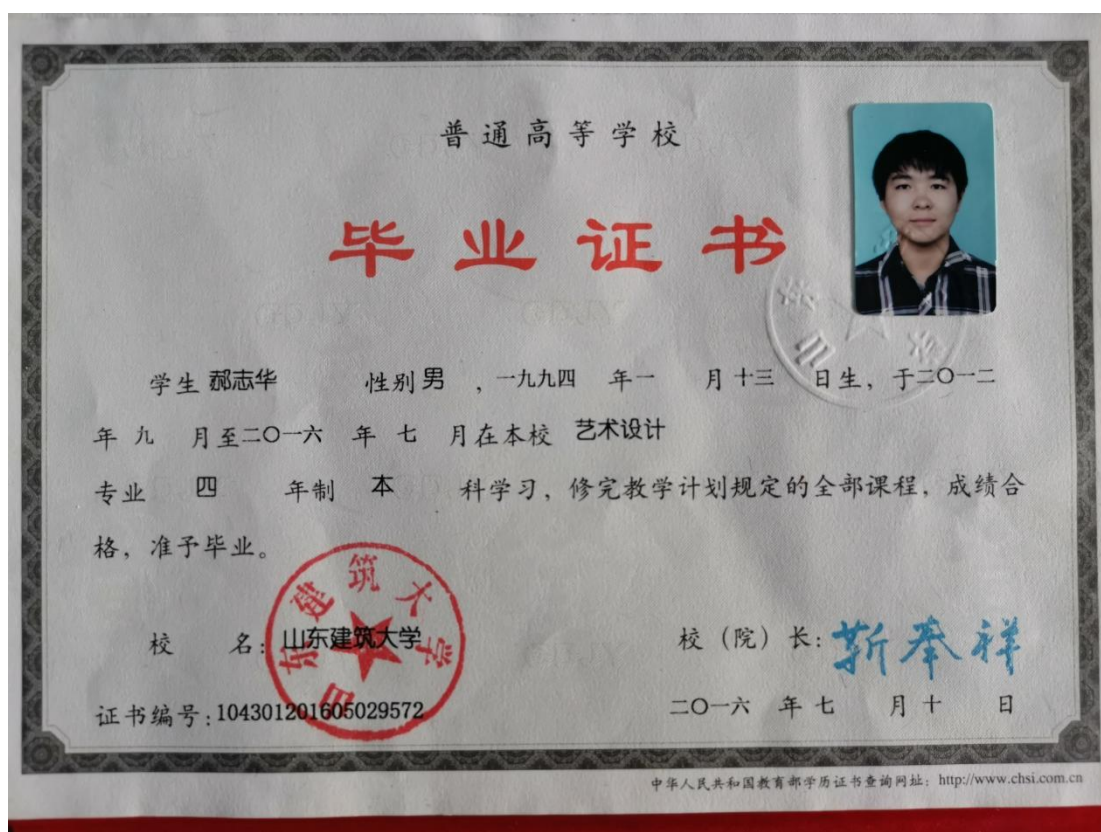 普通高等学校
毕业证书
学生 郝志华 性别 男 ,一九九四 年一 月十三 日生,于二〇一二
年 九 月至二〇一六 年 七 月在本校 艺术设计
专业 四 年制 本 科学习,修完教学计划规定的全部课程,成绩合
格,准予毕业。
山东建筑大学
校 名:山东建筑大学
校(院)长:靳奉祥
证书编号:104301201605029572
二〇一六 年 七 月 十 日
中华人民共和国教育部学历证书查询网址:http://www.chsi.com.cn